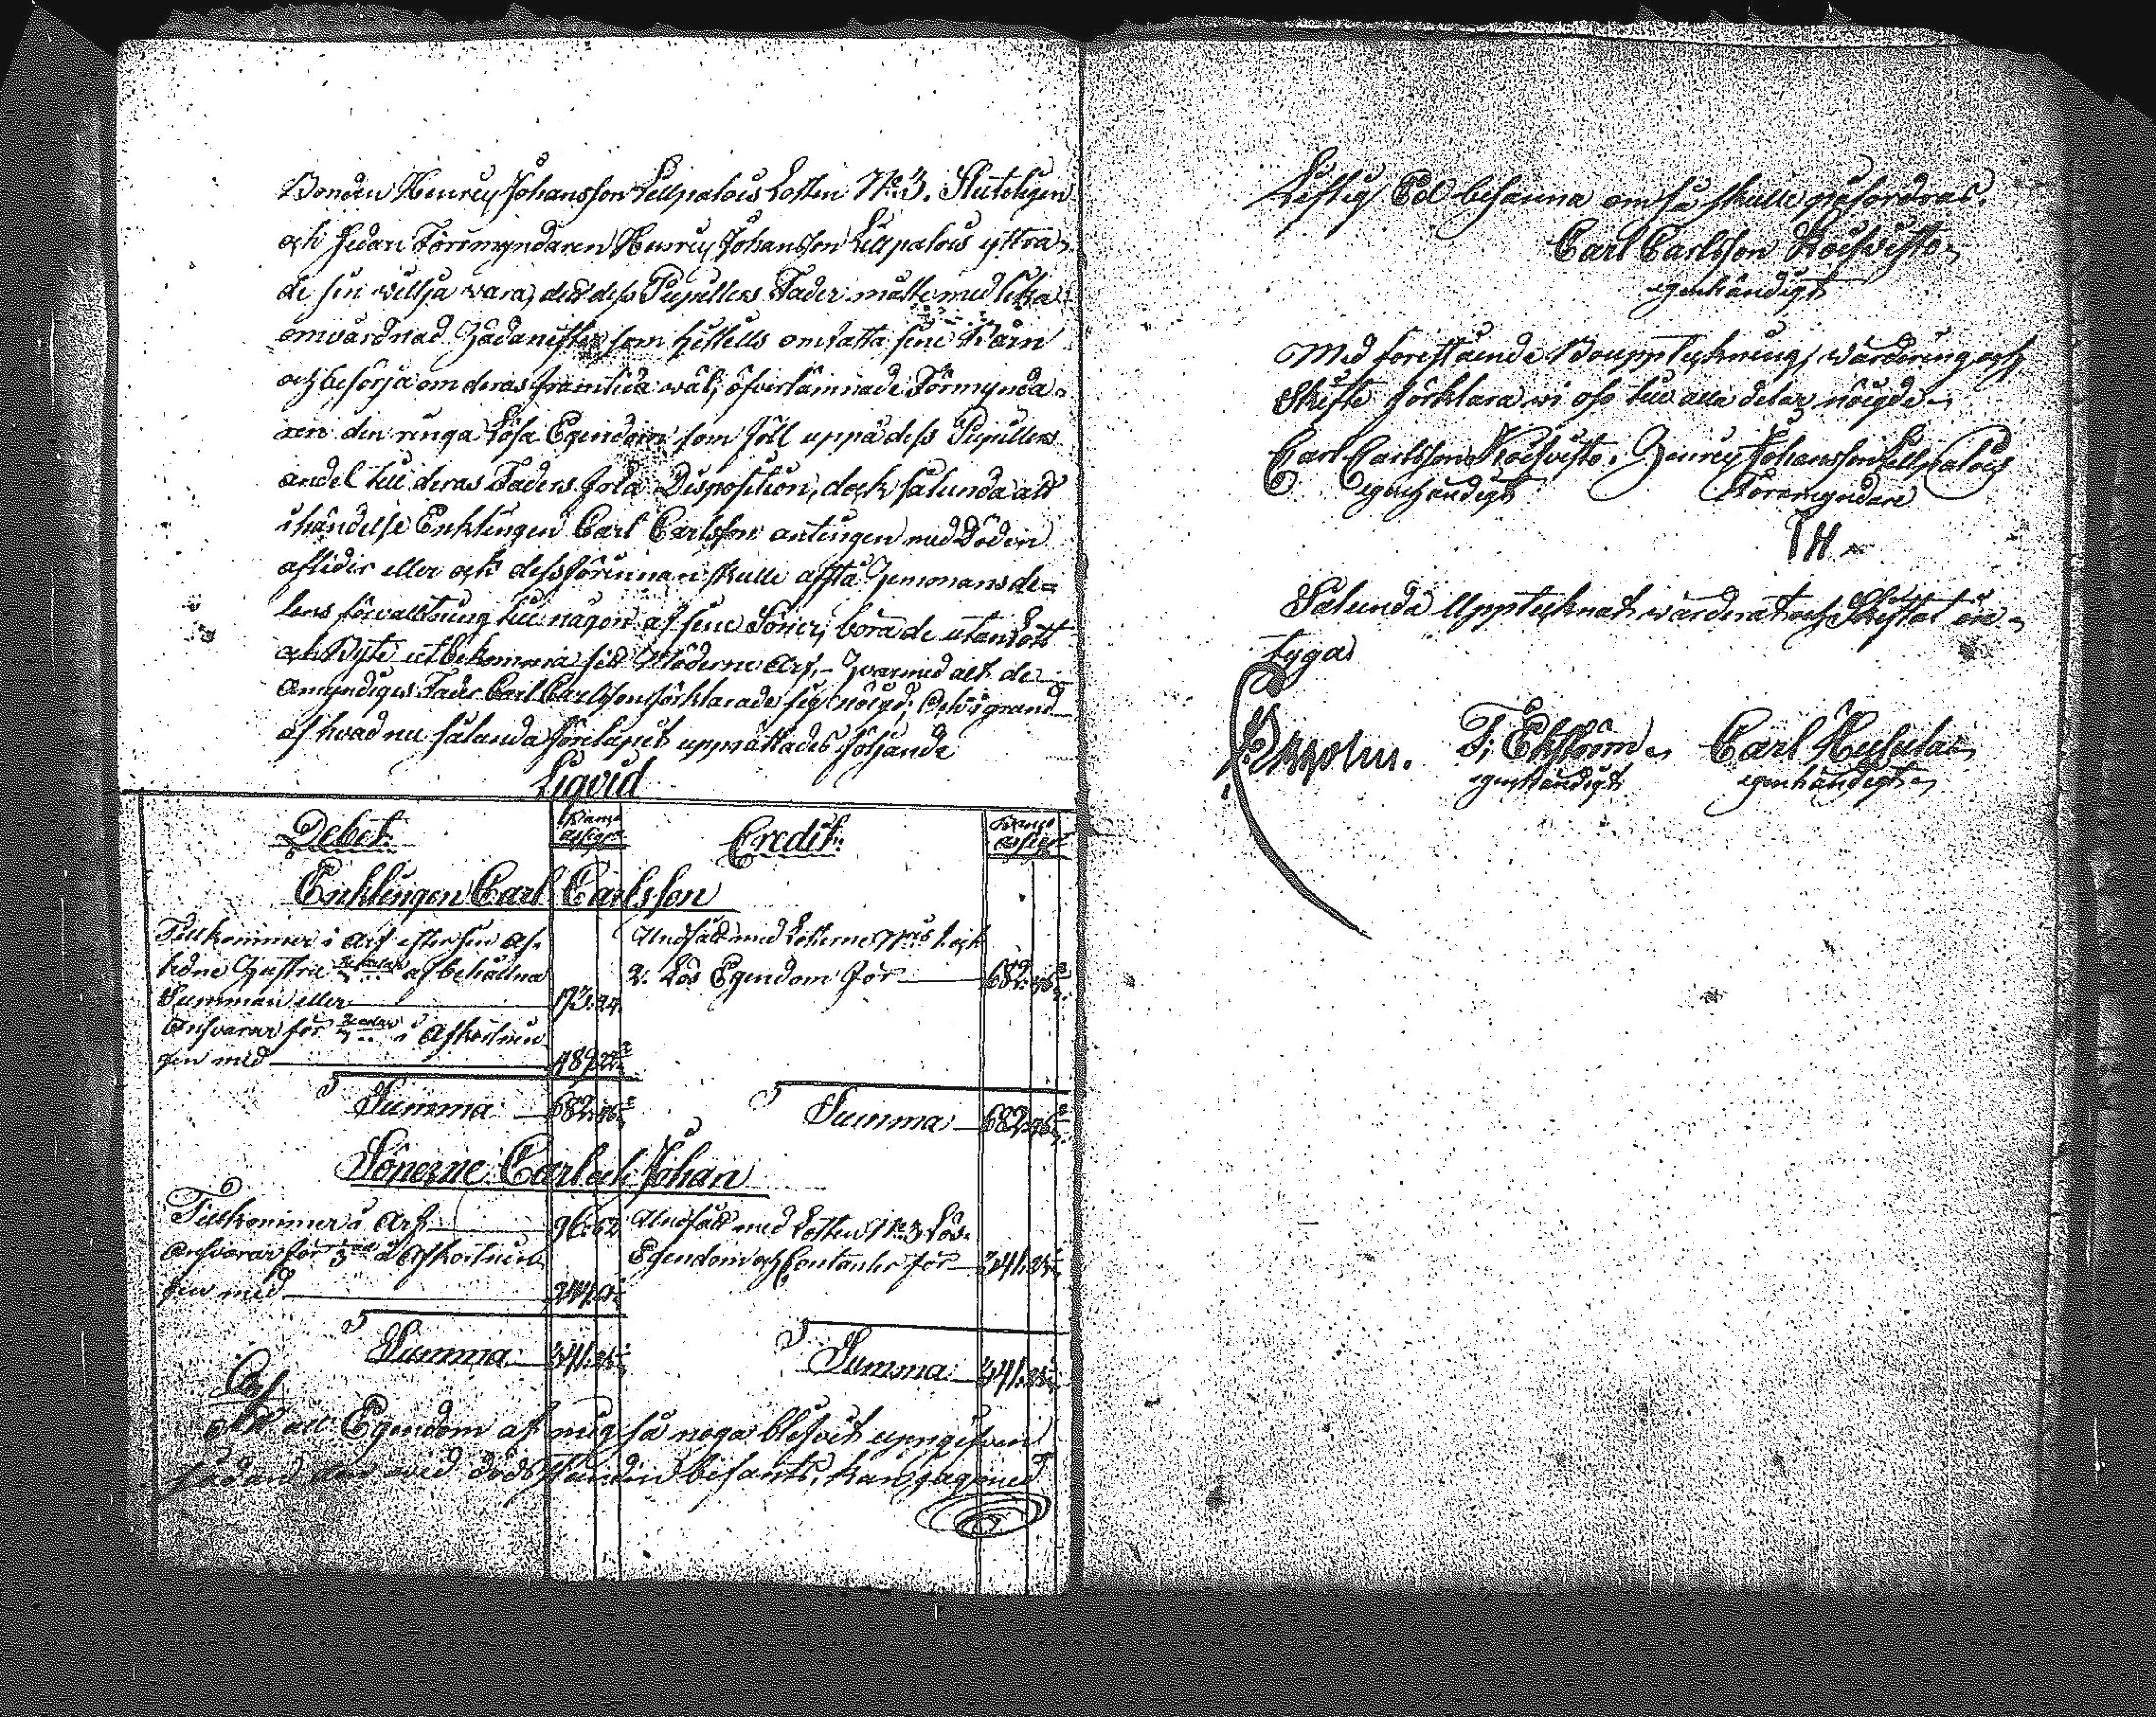 Bonden Henric Johansson Lillpalois Lotten N:o 3. Sluteligen
och sedan Förmyndaren Henric Johansson Lillpalois yttra-
de sin villja vara, det dess Pupillers Fader måtte med lika
omvårdnad hädanefter som hittills omfatta sine Barn
och besörja om deras framtida wäl, öfverlämnade Förmynda-
ren den ringa Lösa Egendom som föll uppå dess Pupillers
andel till deras Faders fria Disposition, dock sålunda att
i händelse Enklingen Carl Carlsson antingen med Döden
aflider eller och dessförinnan skulle afstå Hemmansde-
lens förvaltning till någon af sine Söner, böra de utan Lott
och Byte utbekomma sitt Möderne Arf. Hvarmed alt de
Omyndiges Fader Carl Carlsson förklarade sig nöigd; Och i grund
af hvad nu sålunda förelupit upprättades följande
Liqvid
Debet. Credit:
Enklingen Carl Carlsson
Tillkommer i Arf efter sin Af-
lidne Hustru af behållna
Summan eller 173:24.
Ansvarar för i Afkortnin
gen med
Undfått med Lotterne N:ris 1. och
2. Lös Egendom för 682:
Summa 682: Summa 682:
Sönerne Carl och Johan
Tillkommer i Arf 96:62
Ansvarar för i Afkortnin
gen med
Undfått med Lotten N:o 3. Lös
Egendom och Contanter för 341:
Summa 341: Summa: 341:
Att all Egendom af mig så noga blifvit uppgifven
sådan den wid dödsstunden befants, kan jag med
Liflig Ed besanna om så skulle påfordras.
Carl Carlsson Koifvisto
egenhändigt
Med förestående Bouppteckning, wärdering och
Skifte förklara wi oss till alla delar nöigde
Carl Carlsson Koifvisto. Henric Johansson Lillpalois
egenhändigt Förmyndare
Sålunda Upptecknat wärderat och Skiftat be-
tyga
F. Ekström Carl
egenhändigt egenhändigt